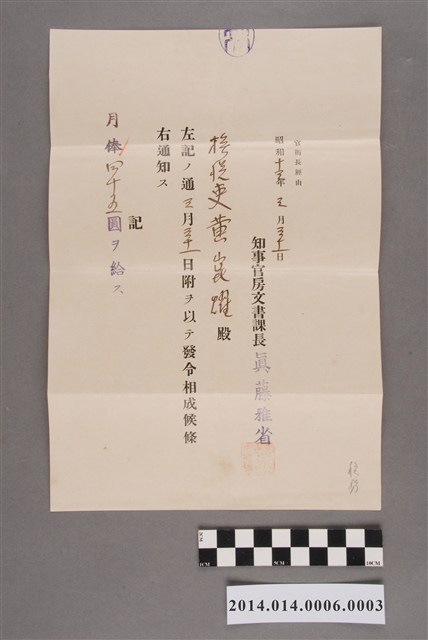 昭和十三年三月三十一日
知事官房文書課長 眞藤雅省
黄崑耀殿
左記ノ通三月三十一日附ヲ以テ發令相成候條
右通知ス
記
月俸四十五圓ヲ給ス
1CM 5CM 10CM
2014.014.0006.0003